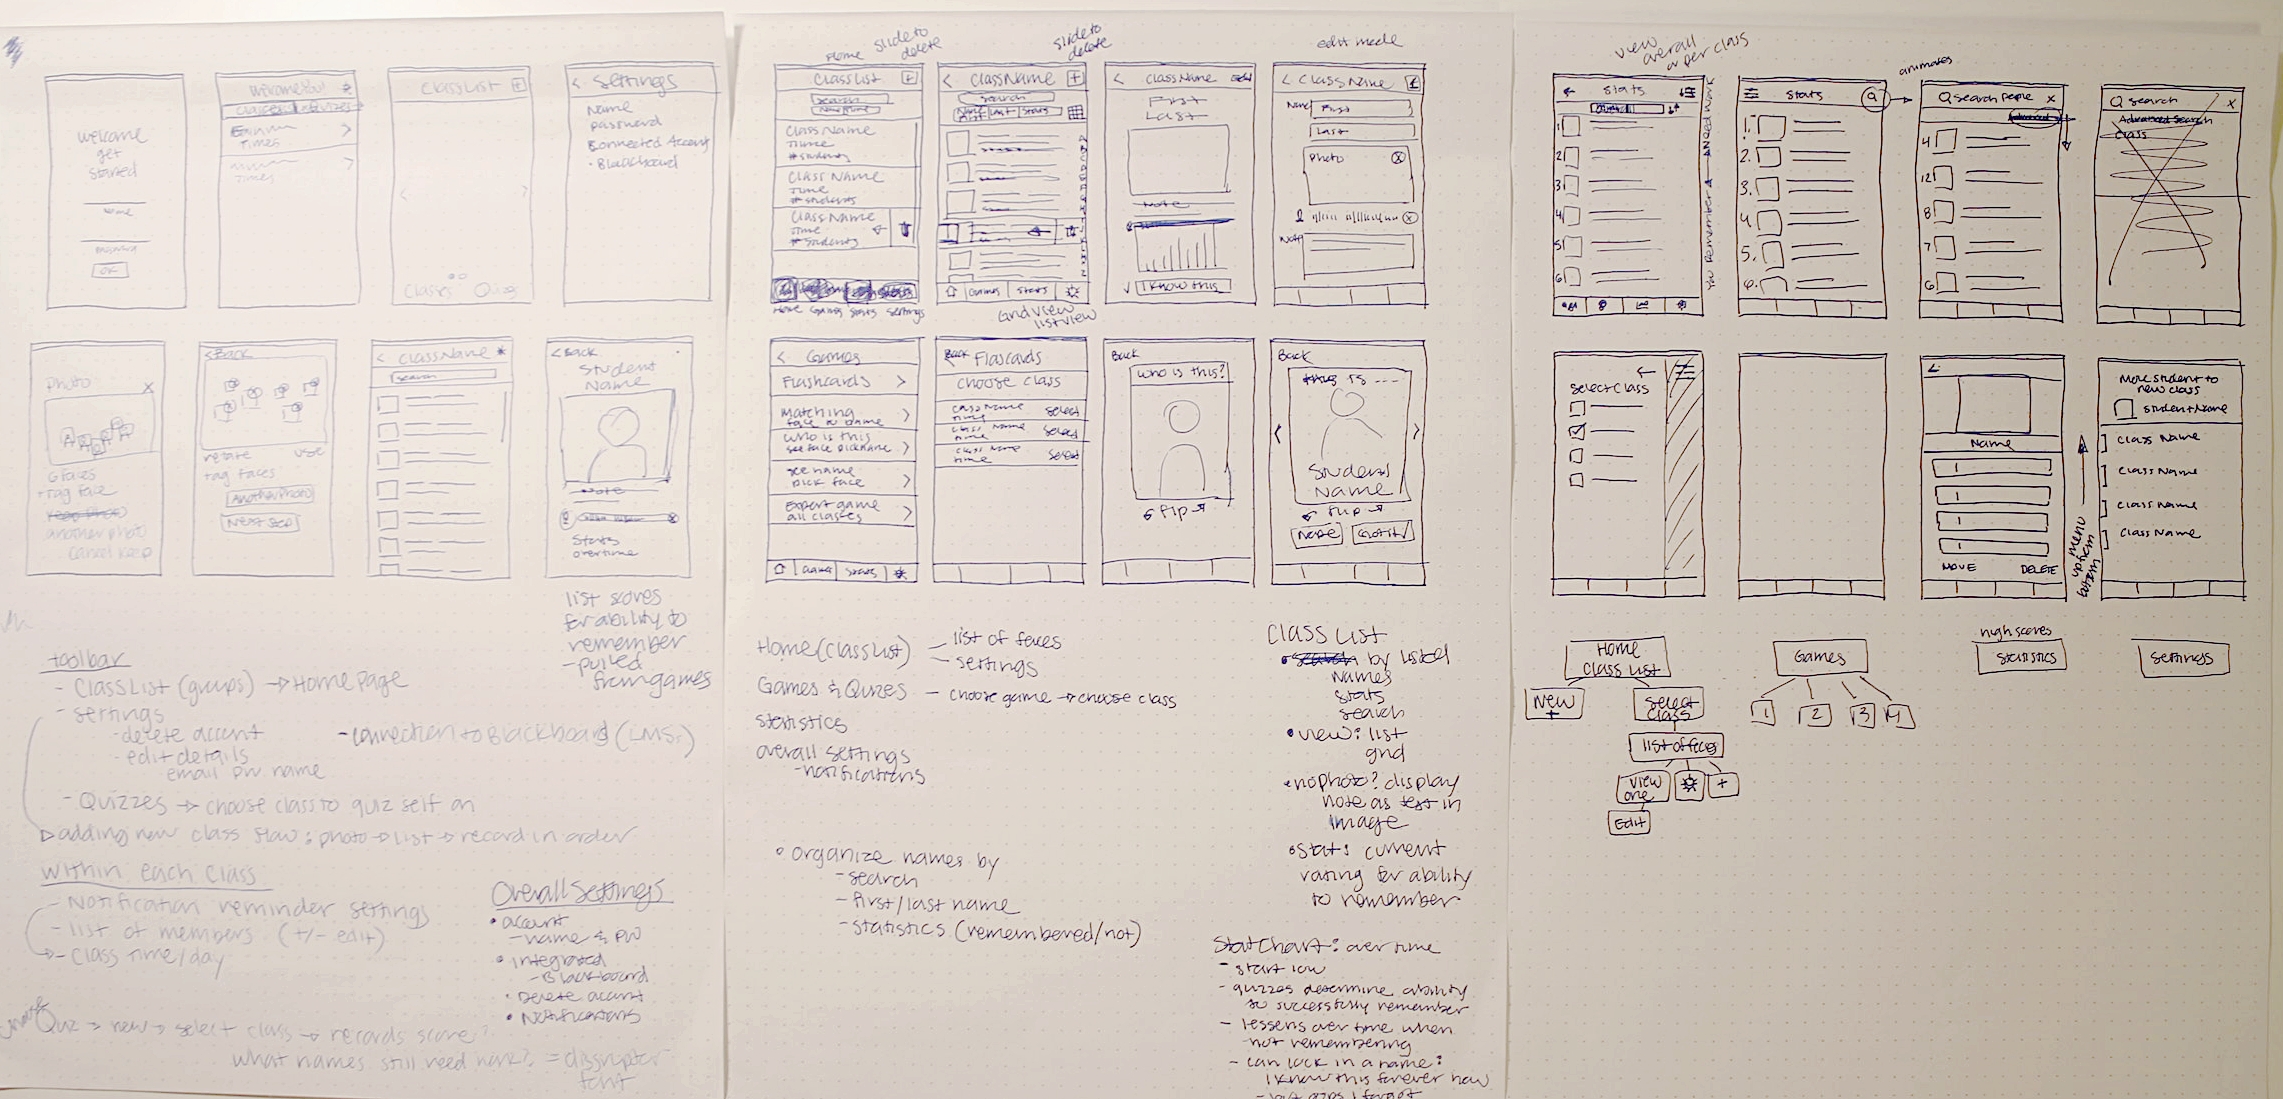 Welcome
get
started
name
OK
Classes
Times
Times
Class List +
Classes Quiz
< Settings
Name
password
Connected Account
· Blackboard
Photo X
6 faces
+ Tag face
another photo
Cancel Keep
< Back
retake use
tag faces
Another Photo
Next Step
< Class Name
search
< Back
Student
Name
Note
Stats
overtime
list scores
for ability to
remember
- pulled
from games
toolbar
- Class List (groups) → Home Page
- settings
- delete account
- edit details
email pw name
- connection to Blackboard (LMSs)
- Quizzes → choose class to quiz self on
adding new class flow: photo → list → record in order
within each class
- Notification reminder settings
- list of members (+/- edit)
- Class time/day
Overall Settings
• account
- name & PW
• integrated
- Blackboard
• Delete account
• Notifications
Quiz → new → select class → records score?
what names still need work? =
font
Home
slide to
delete
Class List +
search
Class Name
Time
# students
Class Name
Time
# students
Class Name
Time
# students
Home Games Stats Settings
slide to
delete
< Class Name +
search
Name Last Stats
Games Stats
Grid view
list view
< Class Name Edit
First
Last
Note
✓ I know this
edit mode
< Class Name
Name First
Last
Photo X
Note
< Games
Flashcards >
Matching >
face to name
who is this >
see face pick name
see name >
pick face
Expert game >
all classes
Games Stats
Back Flascards
Choose class
Class Name Select
time
Class Name Select
time
Class Name Select
time
Back
Who is this?
flip
Back
This is ----
Student
Name
flip
Nope Got it ✓
Home (class list) - list of faces
- settings
Games & Quizes - choose game → choose class
statistics
overall settings
- notifications
• organize names by
- search
- first/last name
- statistics (remembered/not)
Class List
• search by listed
Names
stats
search
• view: list
grid
• no photo? display
note as text in
image
• Stat: current
rating for ability
to remember
Stat Chart: over time
- start low
- quizzes determine ability
to successfully remember
- lessens over time when
not remembering
- can lock in a name:
I know this forever now
view
overall
or per class
← Stats
overall
1
2
3
4
5
6
You Remember ← → Need Work
Stats
1.
2.
3.
4.
5.
6.
animates
Search People X
Advanced
4
12
8
7
6
Search X
Advanced Search
Class
Select Class
Name
MOVE DELETE
menu
swipes up from
bottom
Move student to
new class
Student Name
Class Name
Class Name
Class Name
Class Name
Home
Class List
New
+
Select
Class
list of faces
View
one
+
Edit
Games
1 2 3 4
high scores
Statistics
Settings